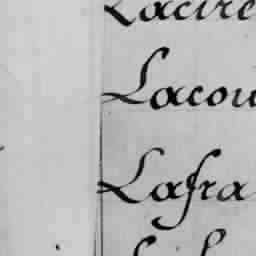 Lacire
Lacou
Lafra